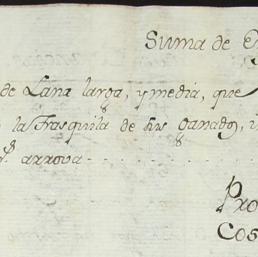 Suma de
de Lana larga, y media, que
la Trasquila de sus ganados,
arrova
Pro
Cos